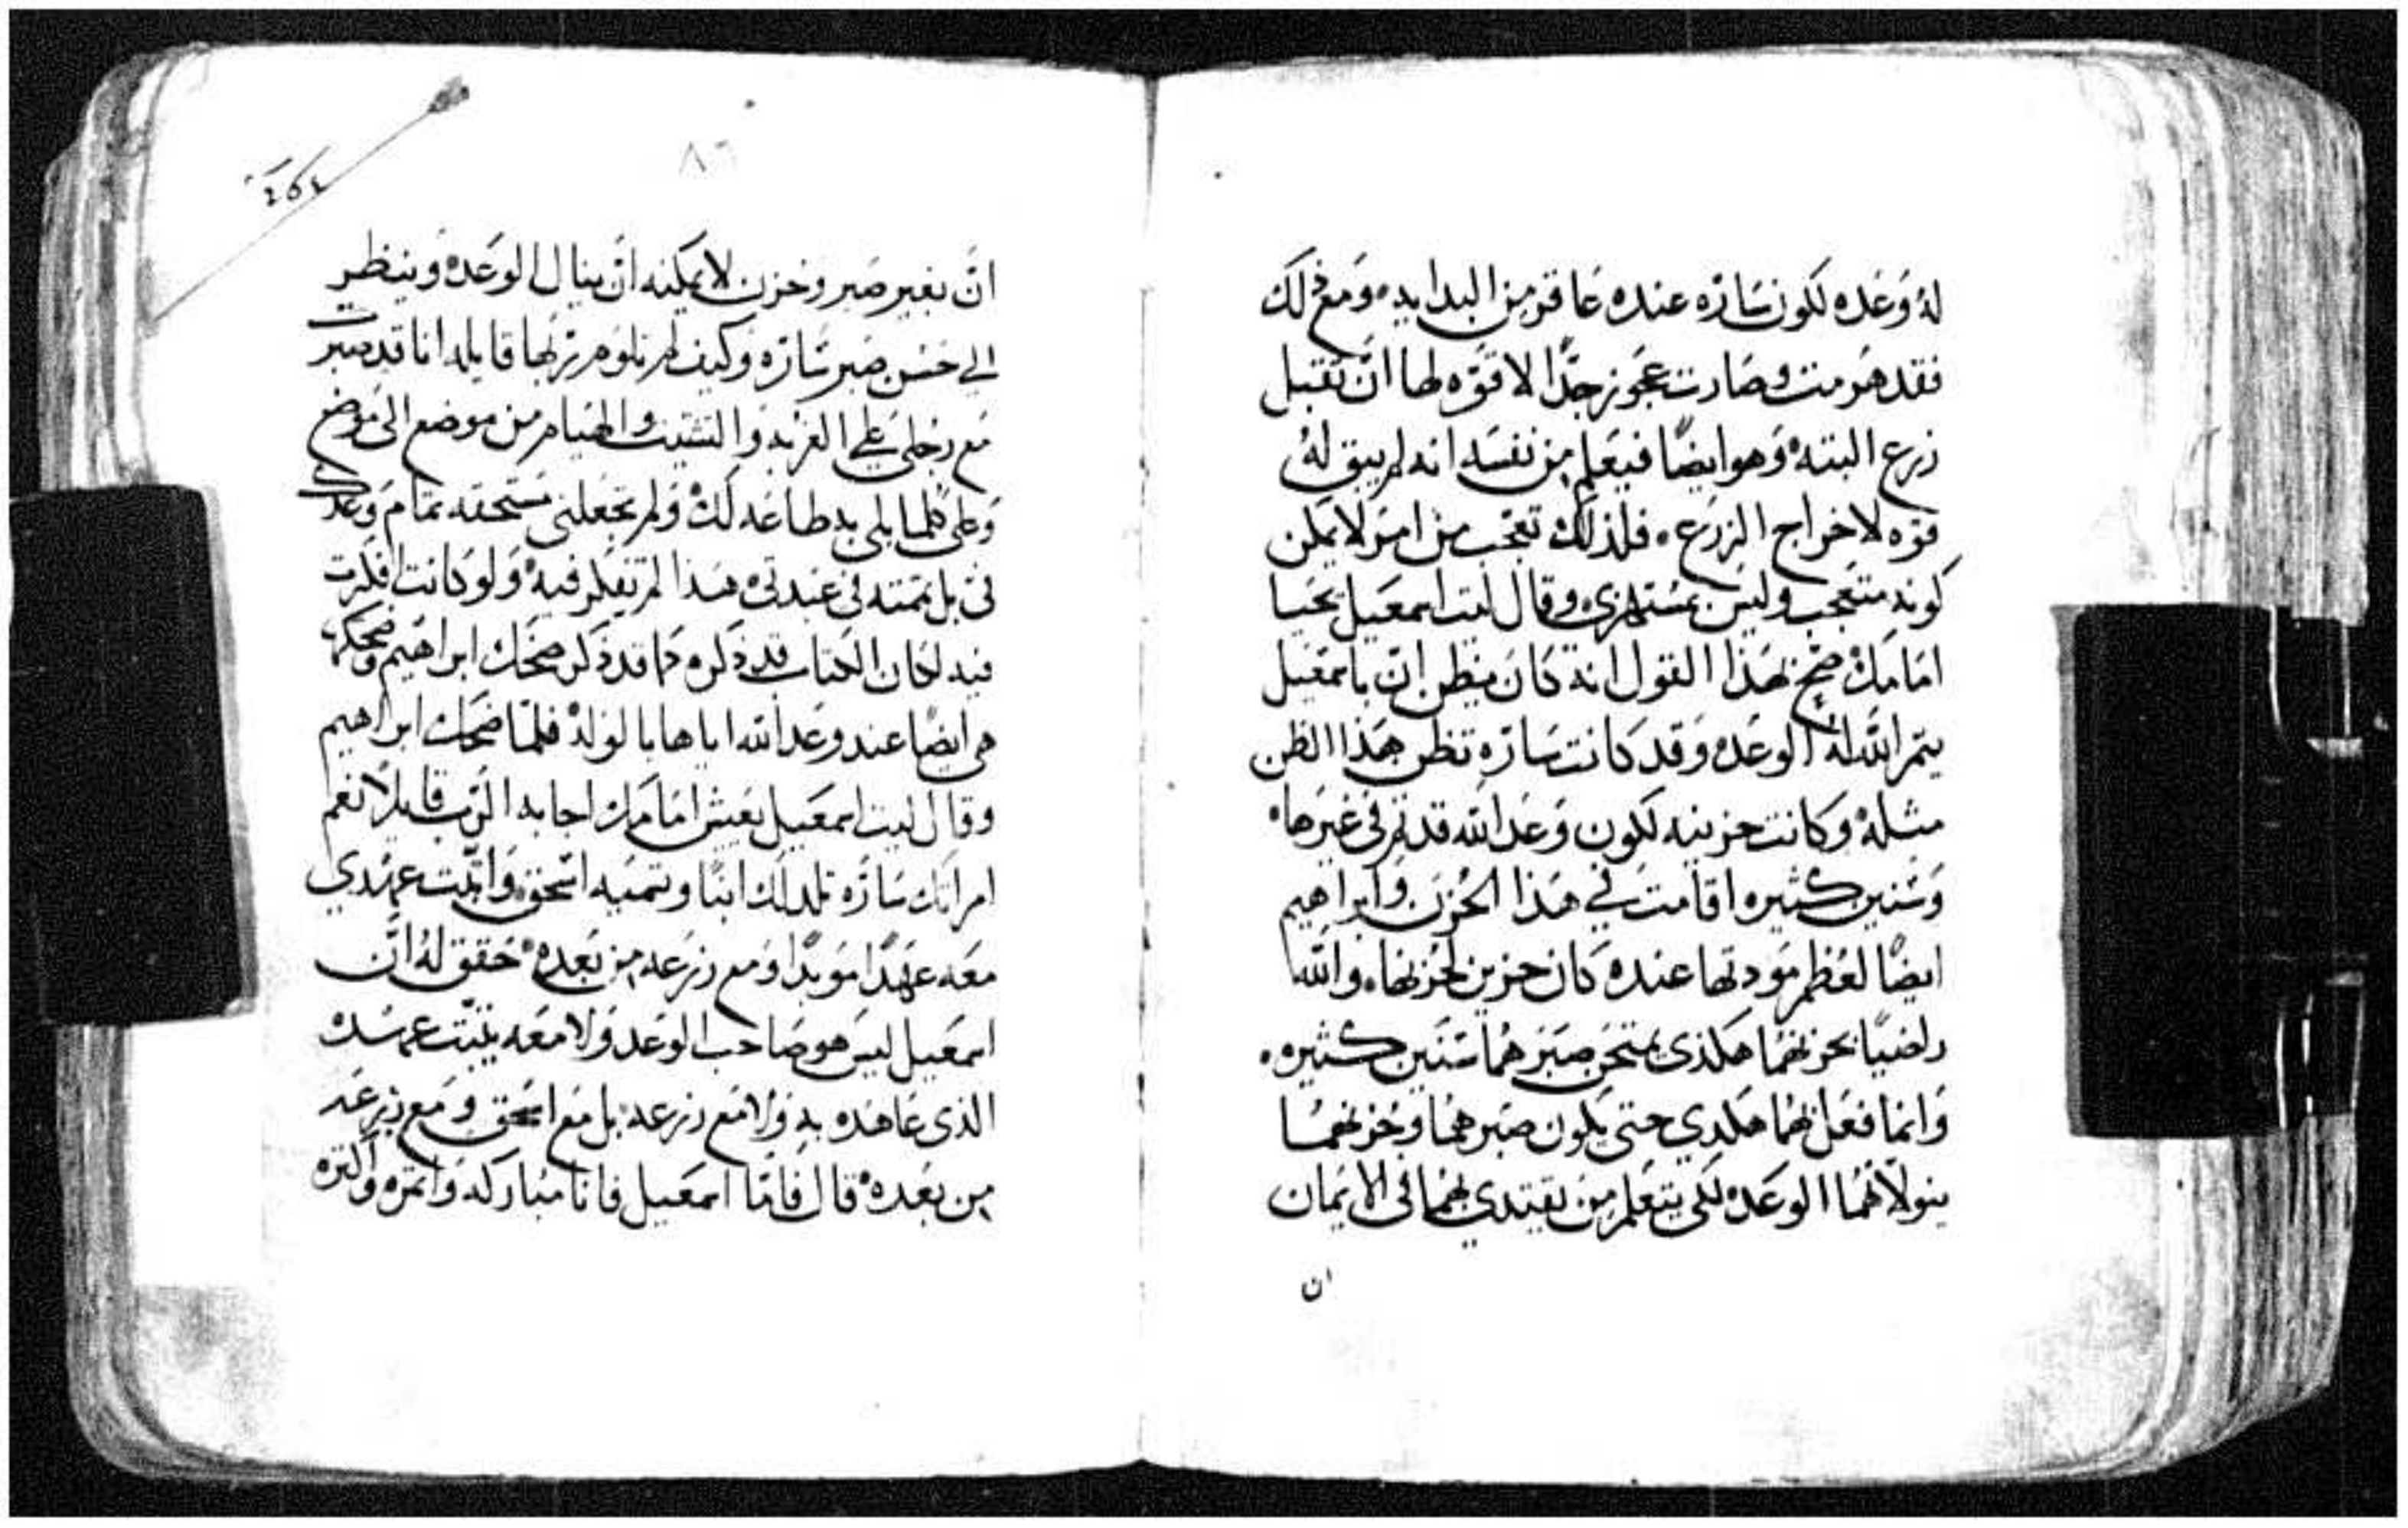 له وعده لكون ساره عنده عاقر من البدايه ومع ذلك
فقد هرمت وصارت عجوز جدًا لا قوّه لها ان تقبل
زرع البته وهو ايضًا فيعلم من نفسه انه لم يبق له
قوه لاخراج الزرع فلذلك تعجب من امر لا يمكن
كونه متعجب وليس بمستهزي وقال ليت اسمعيل يحيا
امامك صح بهذا القول انه كان يظن ان باسمعيل
يتم الله له الوعده وقد كانت ساره تظن هذا الظن
مثله وكانت حزينه لكون وعد الله قد تم في غيرها
وسنين كثيره اقامت في هذا الحزن وابراهيم
ايضًا لعظم مودتها عنده كان حزين لحزنها والله
راضيًا بحزنهما هكذى يمتحن صبرهما سنين كثيره
وانما فعل بهما هكدي حتى يكون صبرهما وحزنهما
ينولانهما الوعده لكي يتعلم من يقتدي بهما في الايمان
ان
٨٦
انّ بغير صبر وحزن لا يمكنه ان ينال الوعده وينظر
الى حسن صبر ساره وكيف لم تلوم ربها قايله انا قد صبرت
مع رجلى على الغربه والتشتيت والهيام من موضع الى موضع
وعلى كلما بلى به طاعه لك ولم تجعلنى مستحقه تمام وعدك
فى بل تممته فى عبدتى هذا لم تفكر فيه ولو كانت افكرت
فيه لكان الكتاب قد ذكره كما قد ذكر ضحك ابراهيم وضحكها
هى ايضًا عند وعد الله اياها بالولد فلما ضحك ابراهيم
وقال ليت اسمعيل يعيش امامك اجابه الرب قايلًا نعم
امراتك ساره تلد لك ابنًا وتسميه اسحق واثبت عهدي
معه عهدًا موبدًا ومع زرعه من بعده حقق له ان
اسمعيل ليس هو صاحب الوعد ولا معه يثبت عهده
الذى عاهده به ولا مع زرعه بل مع اسحق ومع زرعه
من بعده قال فامّا اسمعيل فانا مباركه واثمره واكثره